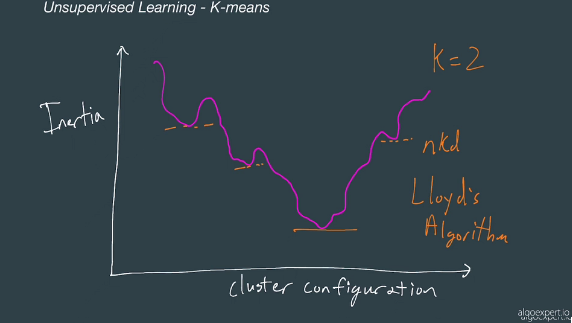 Unsupervised Learning - K-means
K=2
Inertia
nkd
Lloyd's
Algorithm
cluster configuration
algoexpert.io
algoexpert.io